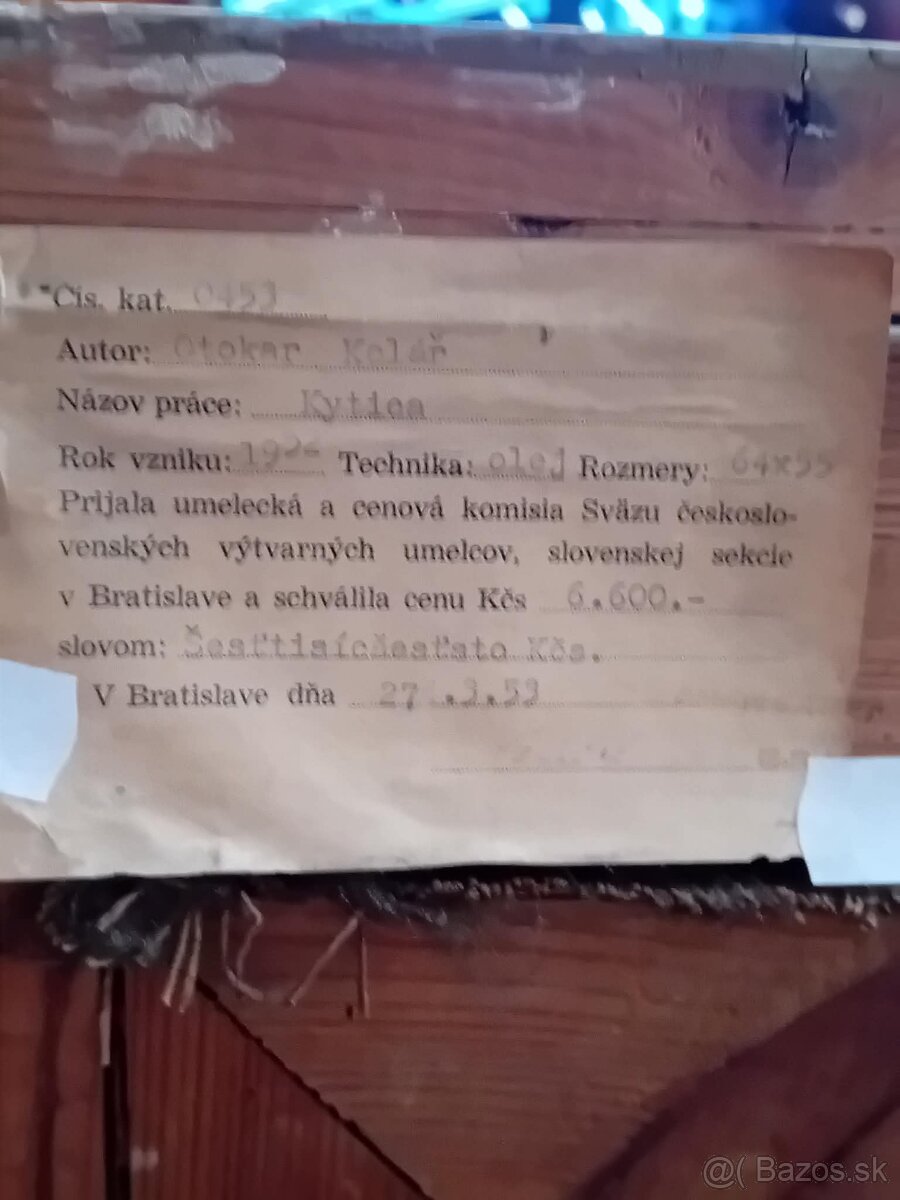 Čís. kat. 0453
Autor: Otokar Kolář
Názov práce: Kytica
Rok vzniku: Technika: olej Rozmery: 64x55
Prijala umelecká a cenová komisia Sväzu českoslo-
venských výtvarných umelcov, slovenskej sekcie
v Bratislave a schválila cenu Kčs 6.600.-
slovom: Šesťtisícšesťsto Kčs.
V Bratislave dňa 27.3.53
@( Bazos.sk